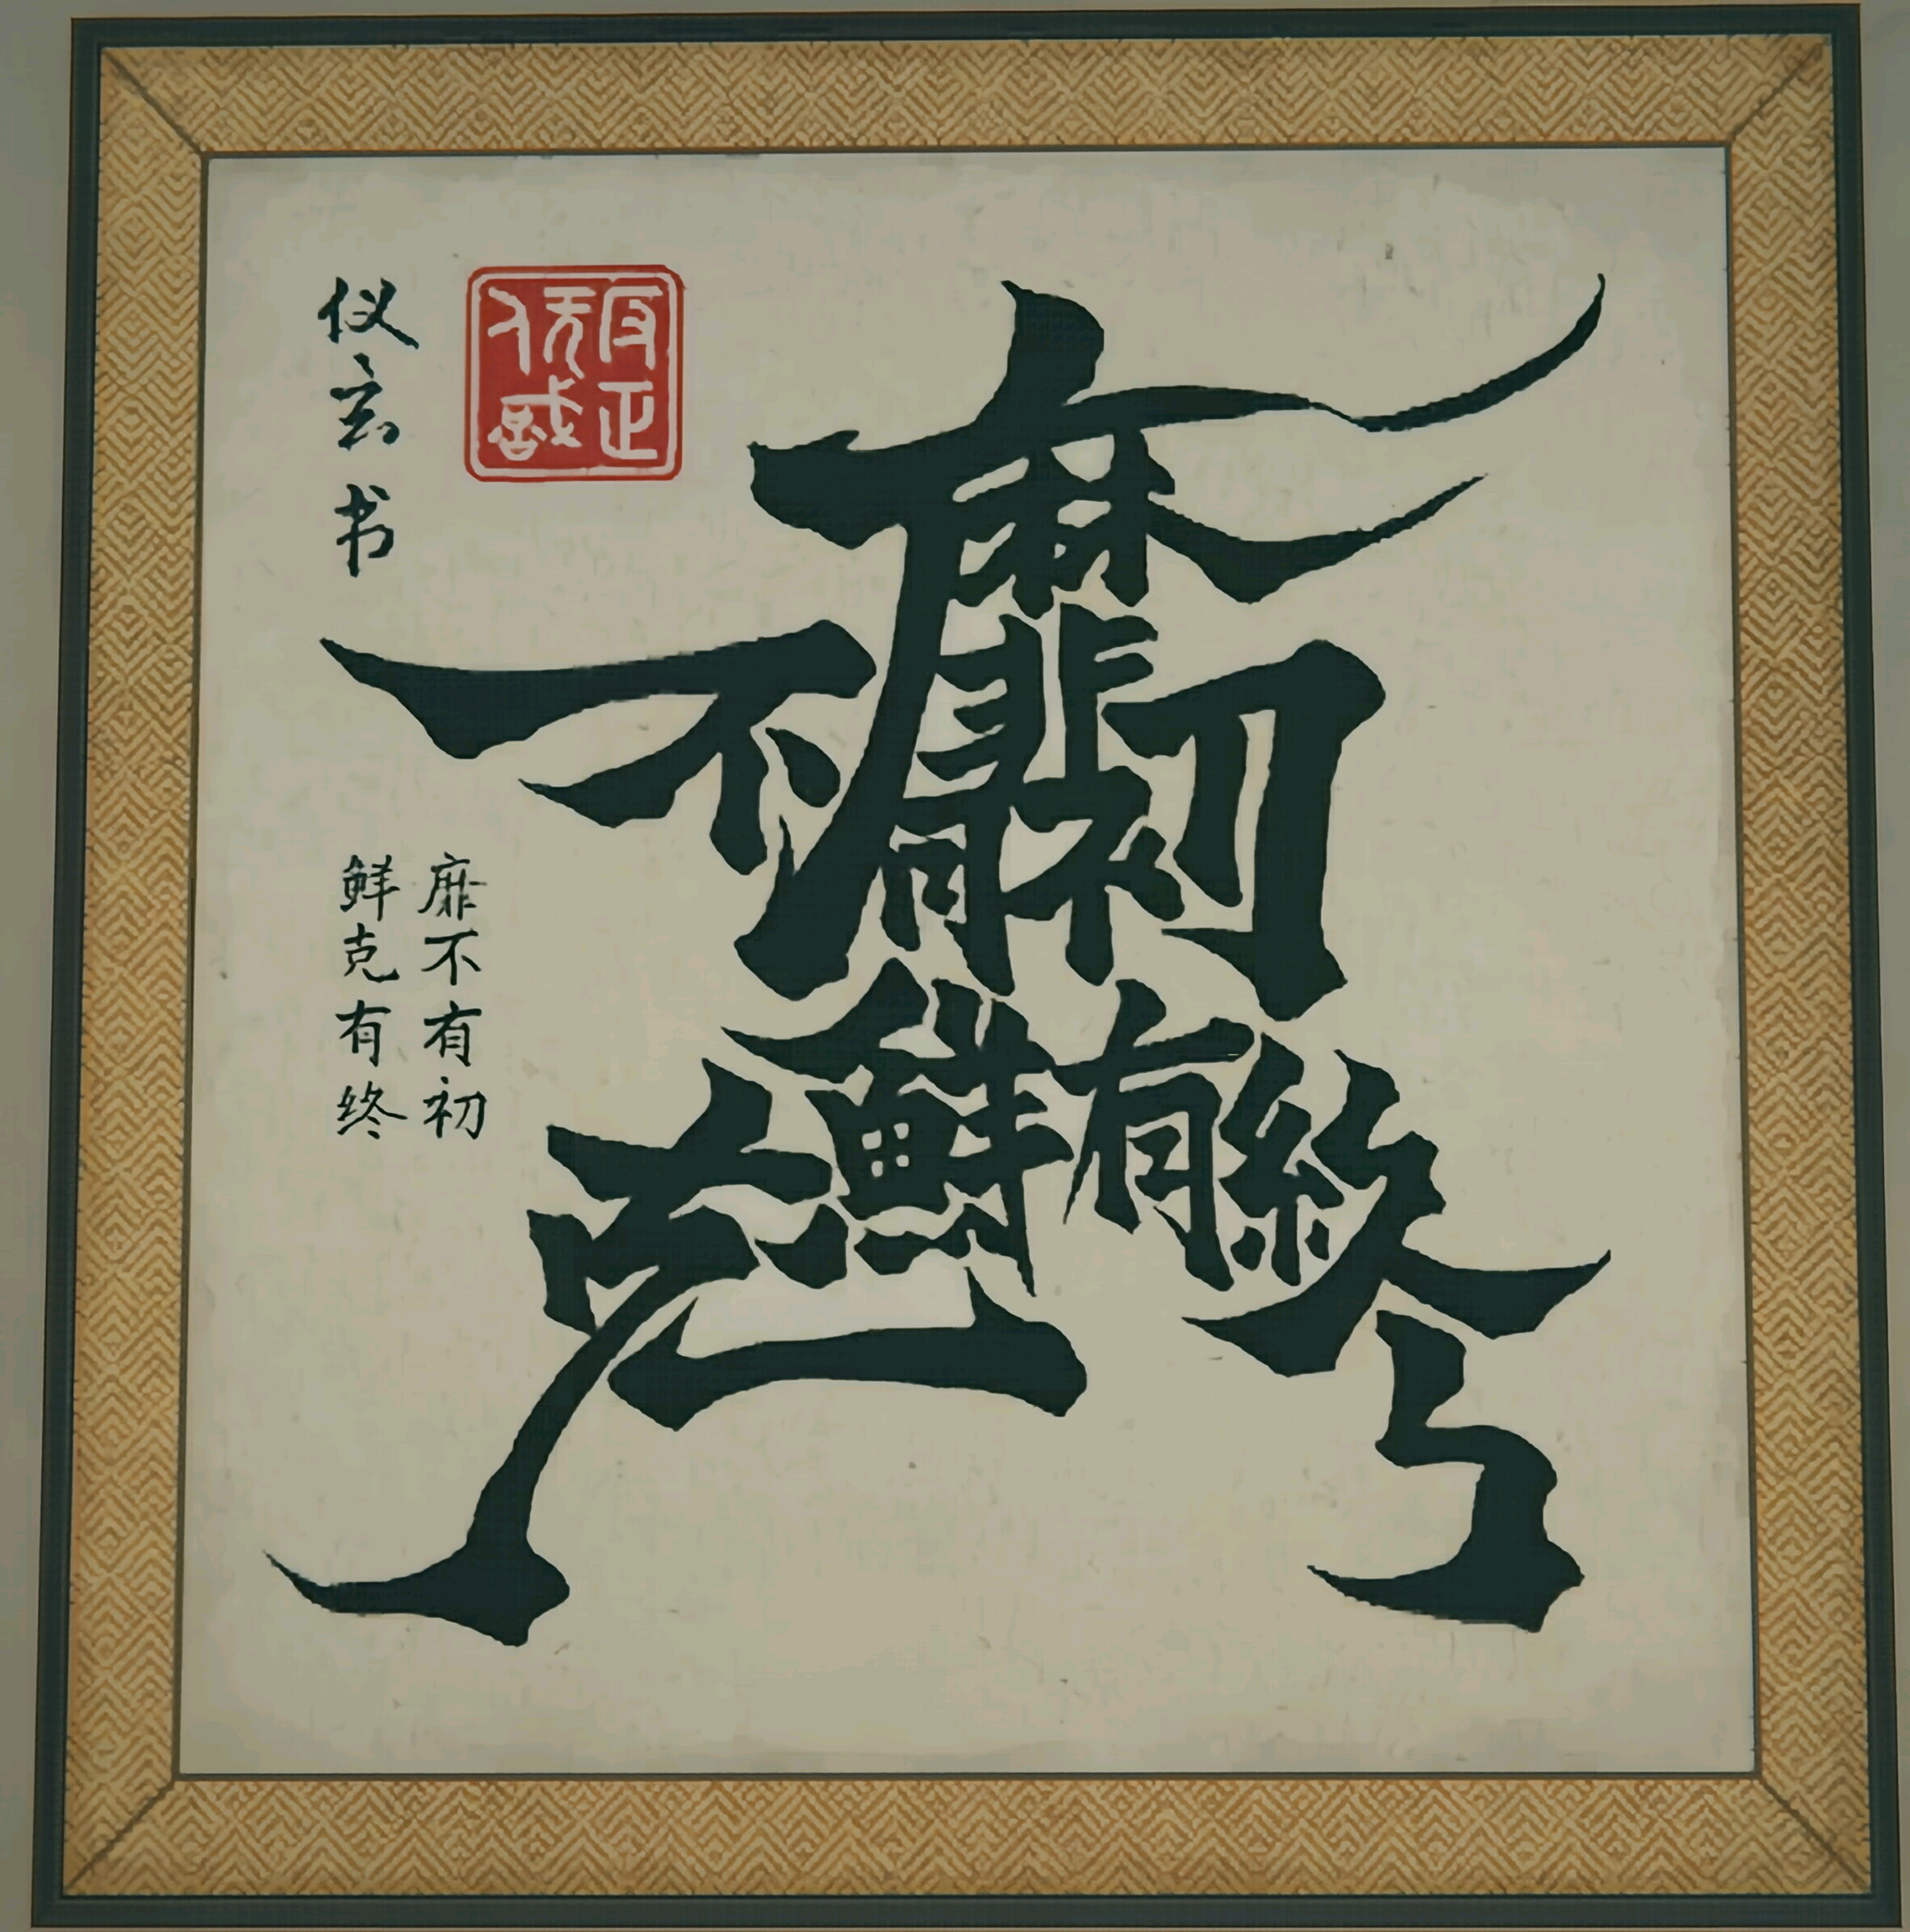 靡不有初
鮮克有終
靡不有初
鲜克有终
仪玄书